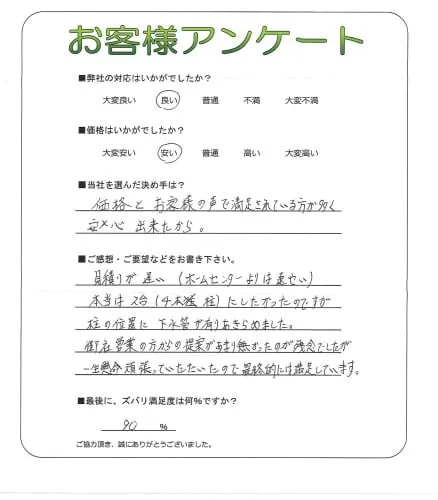 お客様アンケート
■弊社の対応はいかがでしたか？
大変良い 良い 普通 不満 大変不満
■価格はいかがでしたか？
大変安い 安い 普通 高い 大変高い
■当社を選んだ決め手は？
価格と お客様の声で満足されている方が多く
安心 出来たから。
■ご感想・ご要望などをお書き下さい。
見積りが 遅い (ホームセンターよりは速い)
本当は 2台 (4本 柱) にしたかったのですが
柱の位置に 下水管が有りあきらめました。
御社営業の方からの提案があまり無かったのが残念でしたが
一生懸命 頑張っていただいたので最終的には満足しています。
■最後に、ズバリ満足度は何%ですか？
90 %
ご協力頂き、誠にありがとうございました。